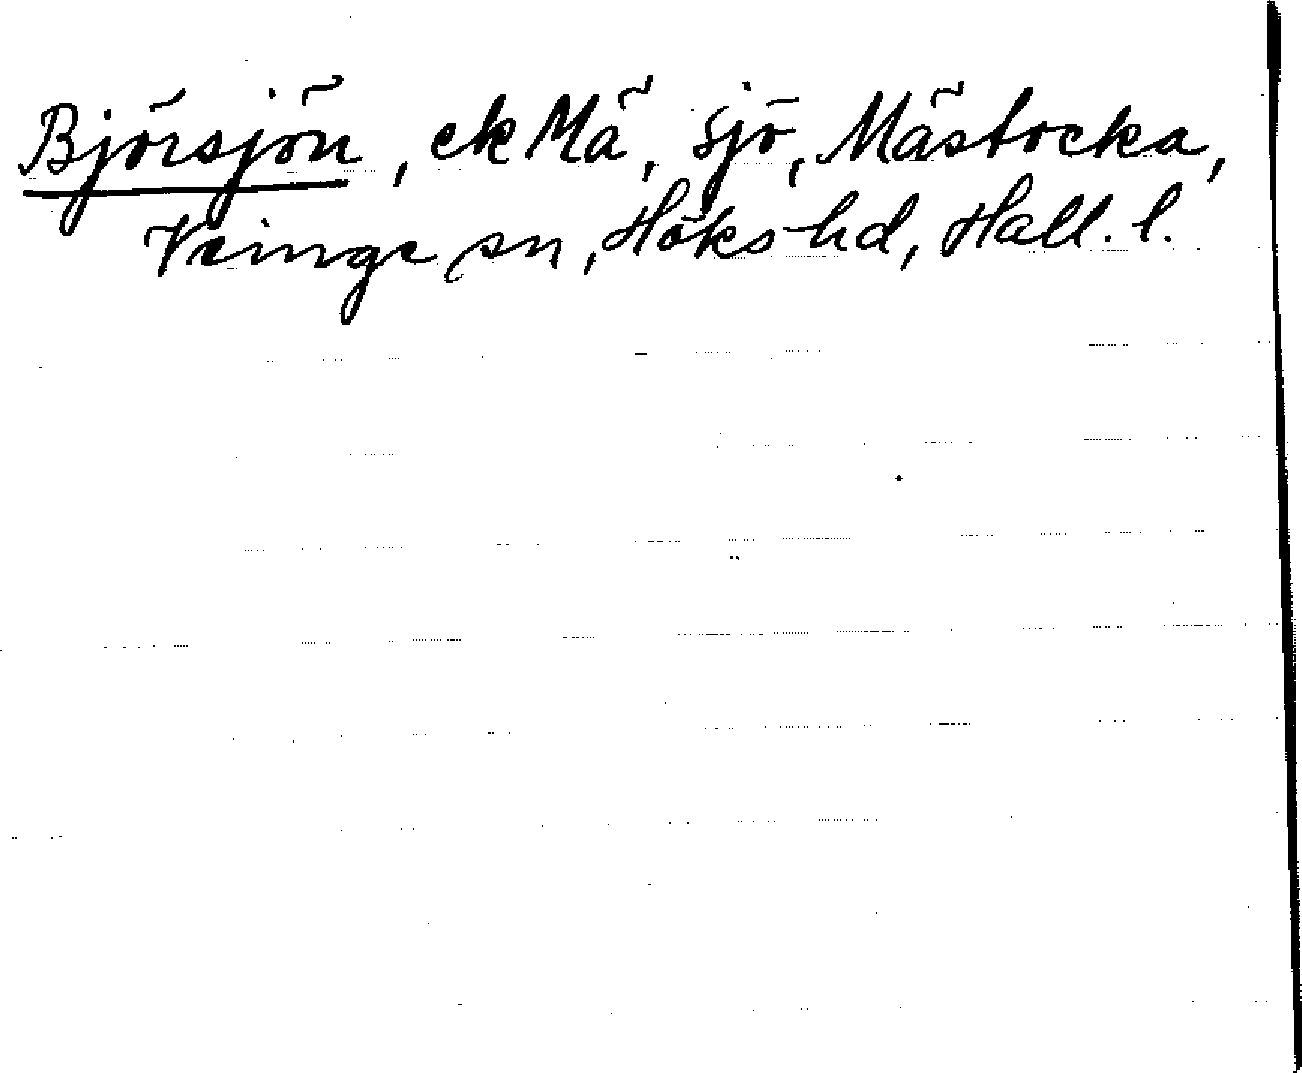 Björsjön, ek Mä, sjö, Mästocka,
Veinge sn, Höks hd, Hall. l.